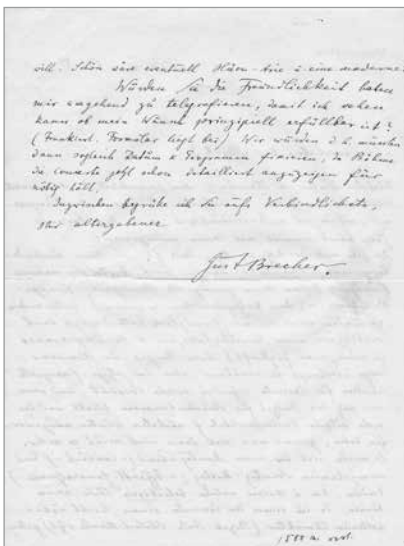 will. Schön wäre eventuell Händel Arie u. eine moderne.
Würden Sie die Freundlichkeit haben
mir umgehend zu telegrafieren, damit ich sehen
kann ob mein Wunsch prinzipiell erfüllbar ist?
(Frankiert. Formular liegt bei) Wir würden d. h. müssten
dann sogleich Datum & Programm fixieren, da Böhme
die Concerte jetzt schon detailliert anzuzeigen für
nötig hält.
Inzwischen begrüße ich Sie aufs Verbindlichste,
Ihr altergebener
Gust Brecher.